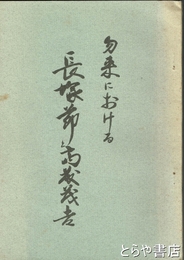 勿来における
長塚節と斎藤茂吉
とらや書店